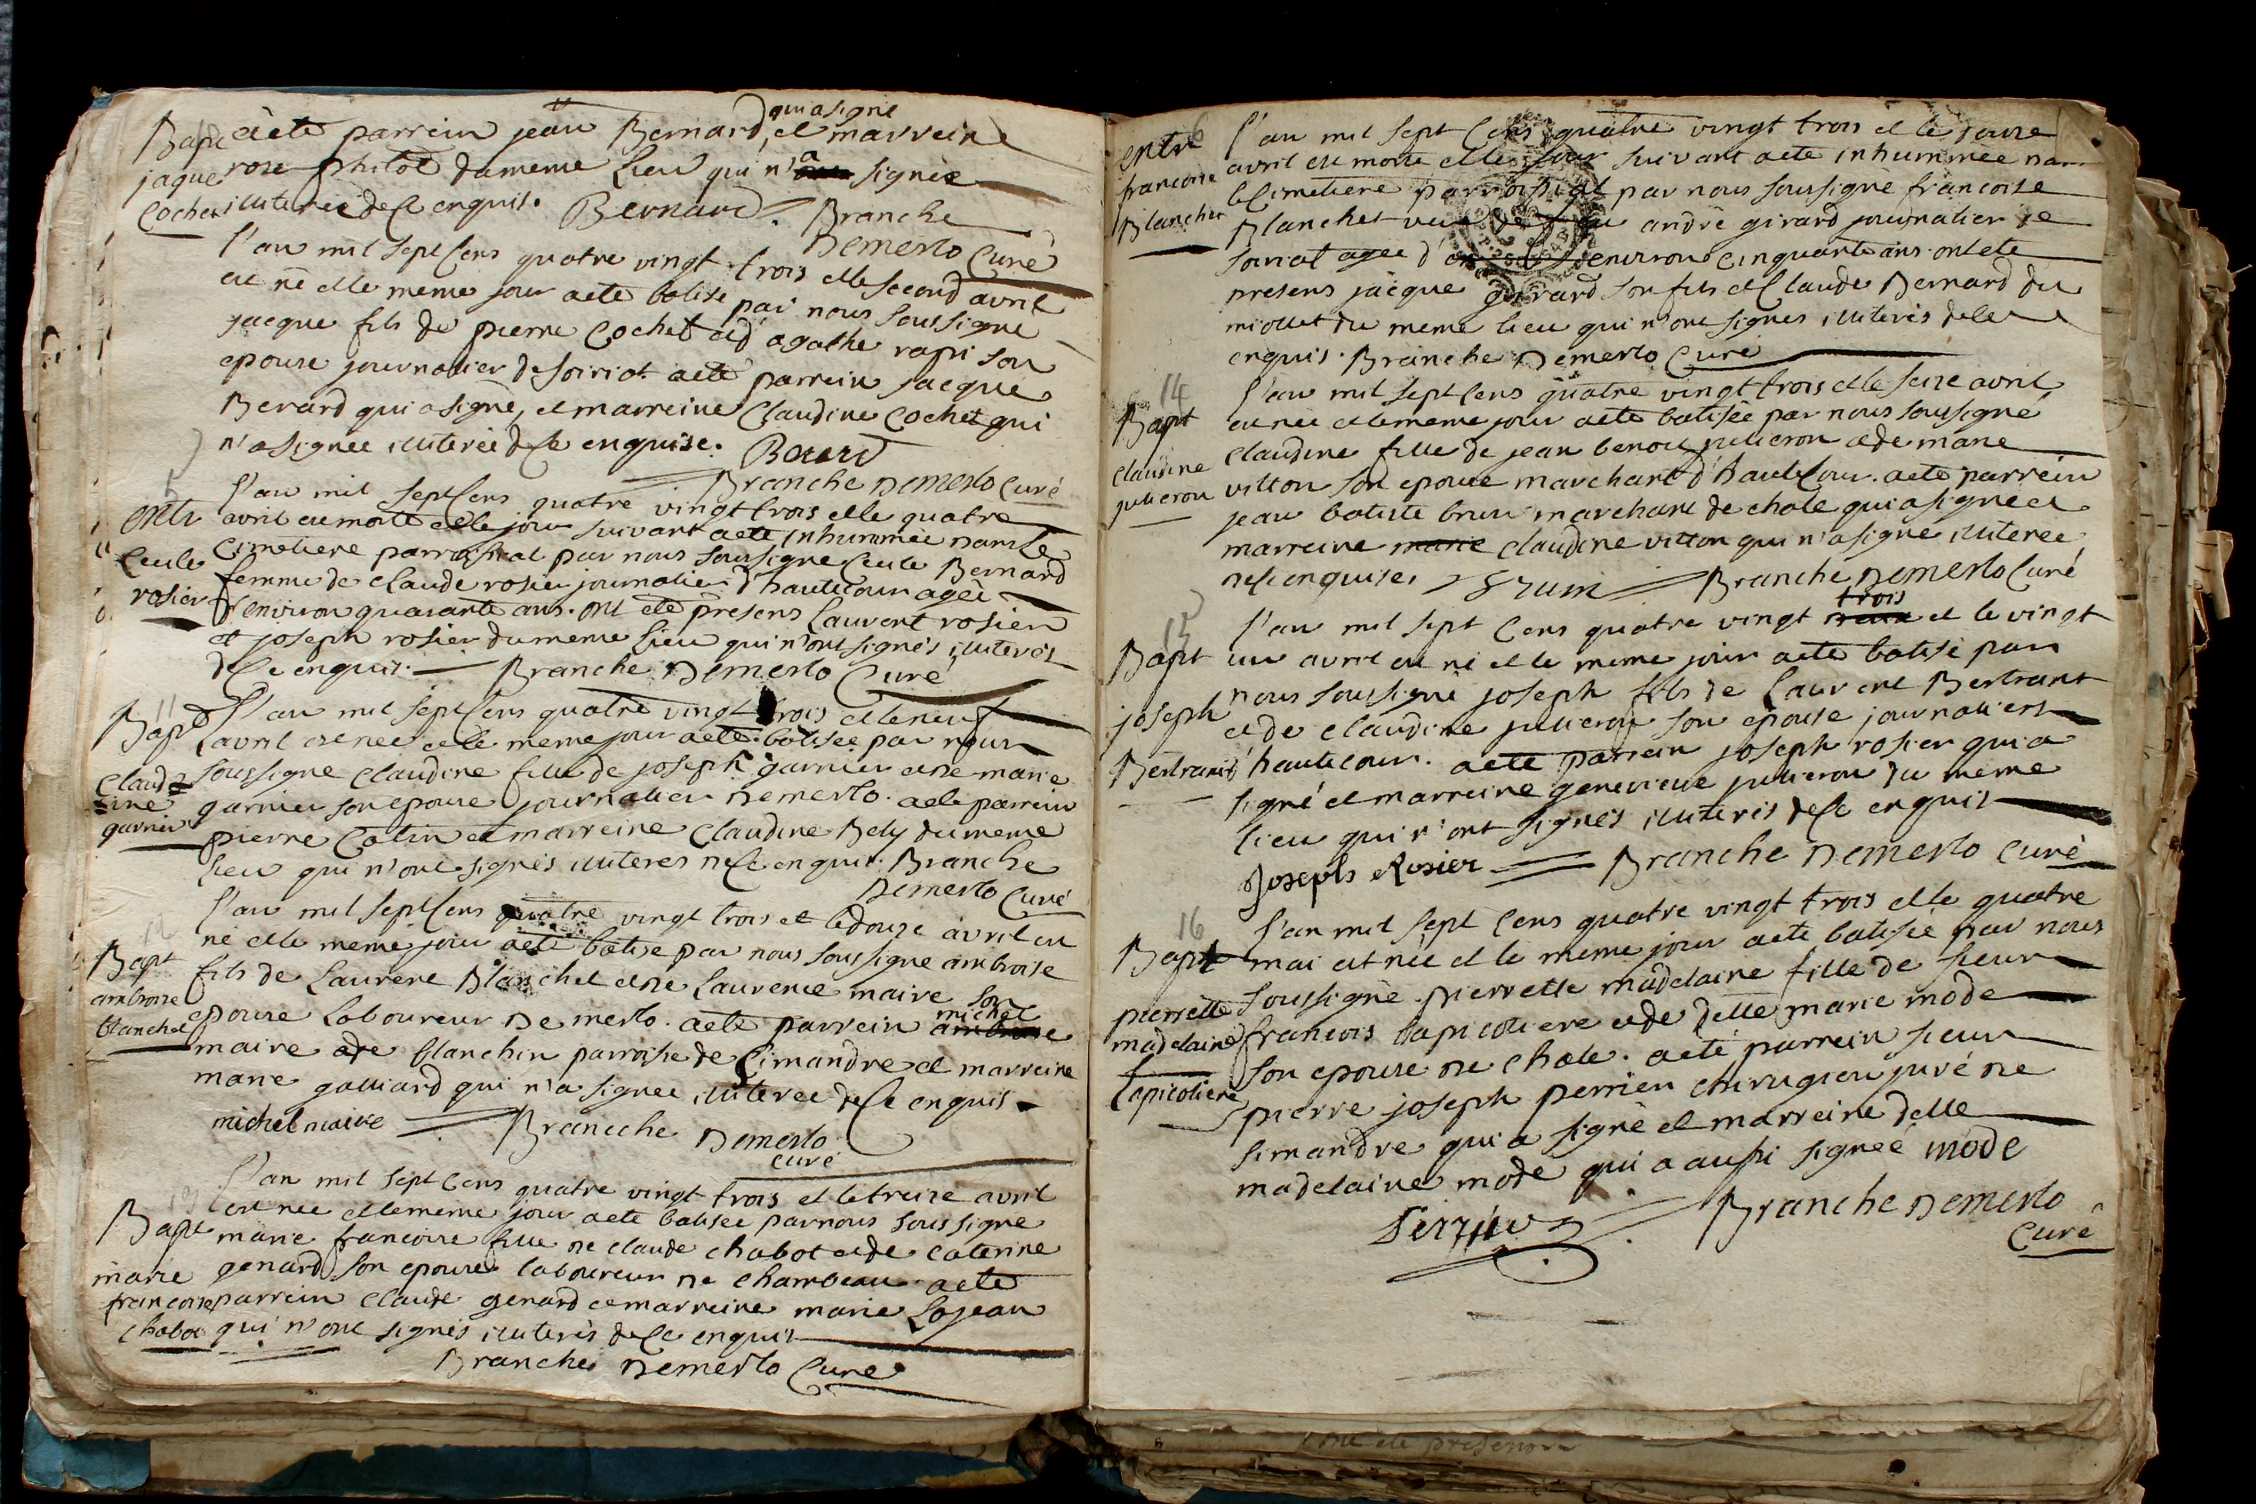 qui a signé
aété parrein jean Bernard et marreine
Bapt
rose philot du meme lieu qui n'a signée
jaque
illiterée de ce enquis. Bernard Branche
Cochet
Demerlo Curé
l'an mil sept cens quatre vingt trois et le second avril
est né et le meme jour aeté batisé par nous soussigné
jacque fils de pierre Cochet et d'agathe rapi son
epouse journalier de soiriat. aeté parrein jacque
Berard qui a signé, et marreine Claudine Cochet qui
n'a signée illiterée de ce enquise. Berard
Branche Demerlo Curé
5
l'an mil sept cens quatre vingt trois et le quatre
entr
avril est morte et le jour suivant aeté inhummée dans le
cimetiere parroissial par nous soussigné Bernard
rosier
femme de claude rosier journalier d'hautecour agée
d'environ quarante ans. ont eté presens Laurent rosier
et joseph rosier du meme lieu qui n'ont signés illiterés
de ce enquis. Branche Demerlo Curé
11
Bapt
l'an mil sept cens quatre vingt trois et le neuf
avril est née et le meme jour aeté batisée par nous
Claudine
soussigné Claudine fille de joseph garnier et de marie
garnier
garnier son epouse journalier Demerlo. aeté parrein
pierre Colin et marreine Claudine Bely du meme
lieu qui n'ont signés illiterés de ce enquis. Branche
Demerlo Curé
12
l'an mil sept cens quatre vingt trois et le douze avril est
né et le meme jour aeté batisé par nous soussigné ambroise
Bapt
fils de Laurent Blanchet et de Laurence maire son
ambroise
michel
epouse Laboureur De merlo. aeté parrein ambroise
blanchet
maire de blanchin parroise de Cimandre et marreine
marie galliard qui n'a signée illiterée de ce enquis
michel maire Branche Demerlo
curé
l'an mil sept cens quatre vingt trois et le treize avril
est née et le meme jour aeté batisée par nous soussigné
Bapt
marie francoise fille de claude chabot et de caterine
marie
genard son epouse laboureur de chambeau. aeté
francoise
parrein claude genard et marreine marie Lojean
chabot
qui n'ont signés illiterés de ce enquis
Branche Demerlo Curé
6
entr
l'an mil sept cens quatre vingt trois et le douze
avril est morte et le jour suivant aeté inhummée dans
francoise
le cimetiere parroissial par nous soussigné francoise
Blanchet
Blanchet veuve de feu andré girard journalier de
soiriat agée d'environ cinquante ans. ont eté
presens jacque girard son fils et Claude Bernard du
miolliet du meme lieu qui n'ont signés illiterés de ce
enquis. Branche Demerlo Curé
14
l'an mil sept cens quatre vingt trois et le seize avril
Bapt
est née et le meme jour aeté batisée par nous soussigné
claudine fille de jean benoit jullieron et de marie
claudine
vitton son epouse marchant d'hautecour. aeté parrein
jullieron
jean batiste brun marchant de chale qui a signé et
marreine marie claudine vitton qui n'a signé illiterée
de ce enquise. Brun Branche Demerlo Curé
15
trois
l'an mil sept cens quatre vingt et le vingt
Bapt
un avril est né et le meme jour aeté batisé par
nous soussigné joseph fils de Laurent Bertrant
joseph
et de claudine jullieron son epouse journaliers
Bertrant
d'hautecour. aeté parrein joseph rosier qui a
signé et marreine genevieve jullieron du meme
lieu qui n'ont signés illiterés de ce enquis
Joseph Rosier Branche Demerlo Curé
16
l'an mil sept cens quatre vingt trois et le quatre
Bapt
mai est née et le meme jour aeté batisée par nous
pierrette
soussigné. pierrette madelaine fille de sieur
madelaine
francois lapicotiere et de delle marie mode
son epouse de chale. aeté parrein sieur
lapicotiere
pierre joseph perrier chirugien juré de
simandre qui a signé et marreine delle
madelaine mode qui a aussi signée mode
Perrier Branche Demerlo
Curé
ont eté presens